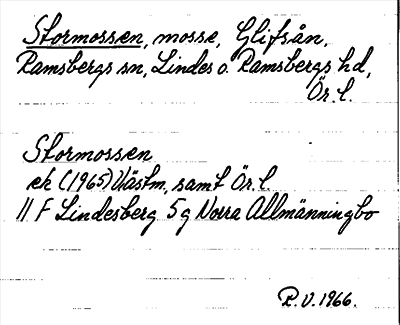 Stormossen, mosse, Glifsån,
Ramsbergs sn, Lindes o. Ramsbergs hd,
Ör. l.
Stormossen
ek (1965) Västm, samt Ör. l.
11 F Lindesberg 5 g Norra Allmänningbo
R.V. 1966.